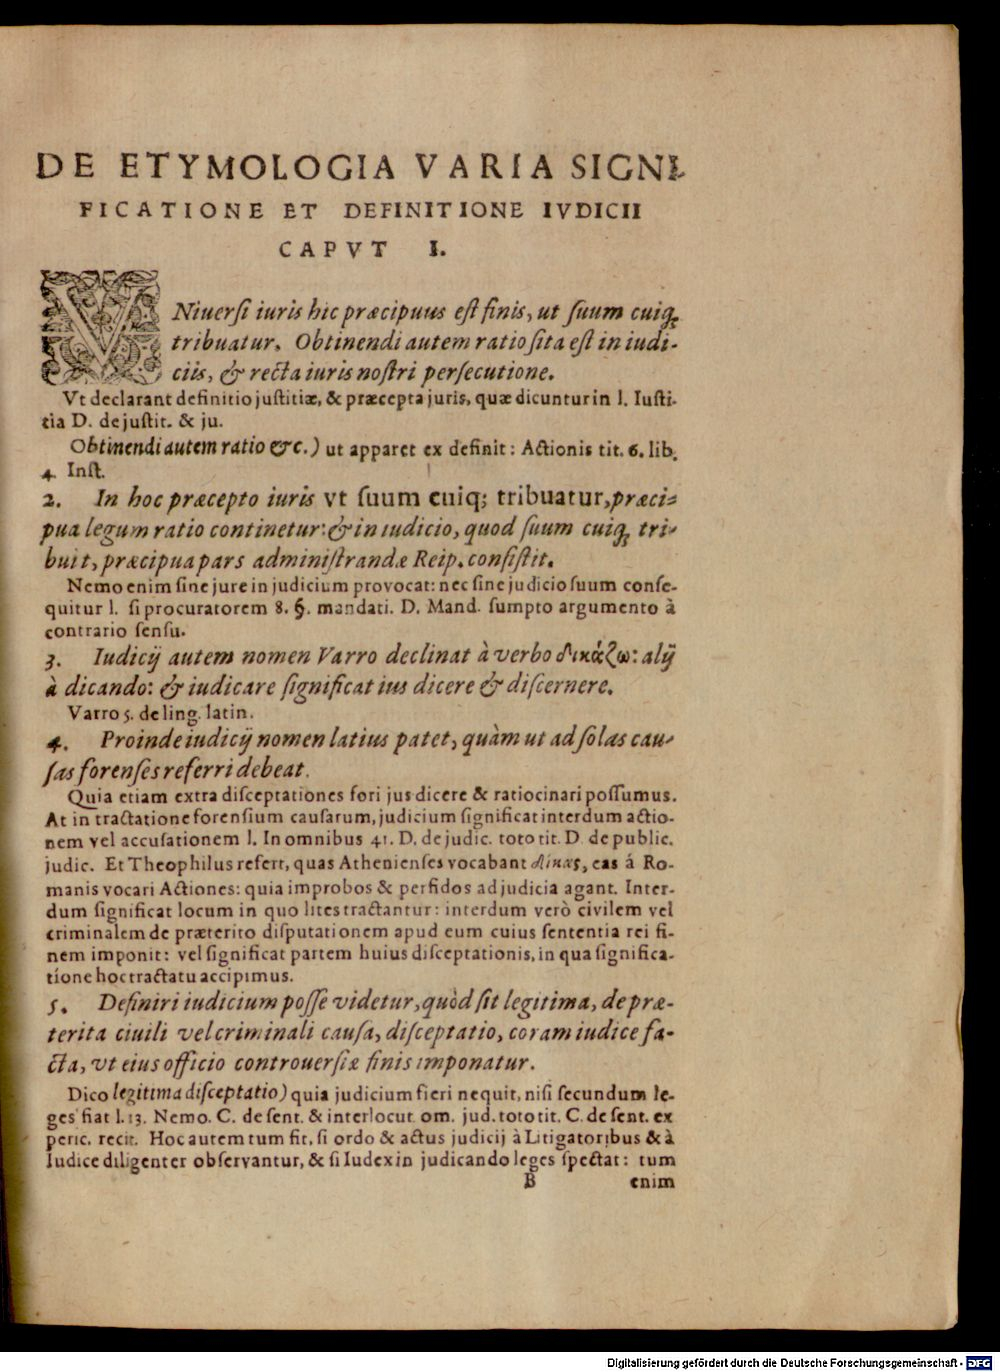 DE ETYMOLOGIA VARIA SIGNI-
FICATIONE ET DEFINITIONE IVDICII
CAPVT I.
VNiuerſi iuris hic præcipuus eſt finis, ut ſuum cuiq;
tribuatur. Obtinendi autem ratio ſita eſt in iudi-
ciis, & recta iuris noſtri perſecutione.
Vt declarant definitio juſtitiæ, & præcepta juris, quæ dicuntur in l. Iuſti-
tia D. de juſtit. & ju.
Obtinendi autem ratio &c.) ut apparet ex definit: Actionis tit. 6. lib.
4. Inſt.
2. In hoc præcepto iuris vt ſuum cuiq; tribuatur, præci-
pua legum ratio continetur: & in iudicio, quod ſuum cuiq; tri-
buit, præcipua pars adminiſtrandæ Reip. conſiſtit.
Nemo enim ſine jure in judicium provocat: nec ſine judicio ſuum conſe-
quitur l. ſi procuratorem 8. §. mandati. D. Mand. ſumpto argumento à
contrario ſenſu.
3. Iudicij autem nomen Varro declinat à verbo δικάζω: alij
à dicando: & iudicare ſignificat ius dicere & diſcernere.
Varro 5. de ling. latin.
4. Proinde iudicij nomen latius patet, quàm ut ad ſolas cau-
ſas forenſes referri debeat.
Quia etiam extra diſceptationes fori jus dicere & ratiocinari poſſumus.
At in tractatione forenſium cauſarum, judicium ſignificat interdum actio-
nem vel accuſationem l. In omnibus 41. D. de judic. toto tit. D. de public.
judic. Et Theophilus refert, quas Athenienſes vocabant δίκας, eas á Ro-
manis vocari Actiones: quia improbos & perfidos ad judicia agant. Inter-
dum ſignificat locum in quo lites tractantur: interdum verò civilem vel
criminalem de præterito diſputationem apud eum cuius ſententia rei fi-
nem imponit: vel ſignificat partem huius diſceptationis, in qua ſignifica-
tione hoc tractatu accipimus.
5. Definiri iudicium poſſe videtur, quòd ſit legitima, de præ-
terita ciuili vel criminali cauſa, diſceptatio, coram iudice fa-
cta, vt eius officio controuerſiæ finis imponatur.
Dico legitima diſceptatio) quia judicium fieri nequit, niſi secundum le-
ges fiat l. 13. Nemo. C. de ſent. & interlocut. om. jud. toto tit. C. de ſent. ex
peric. recit. Hoc autem tum fit, ſi ordo & actus judicij à Litigatoribus & à
Iudice diligenter obſervantur, & ſi Iudex in judicando leges ſpectat: tum
B enim
Digitalisierung gefördert durch die Deutsche Forschungsgemeinschaft - DFG